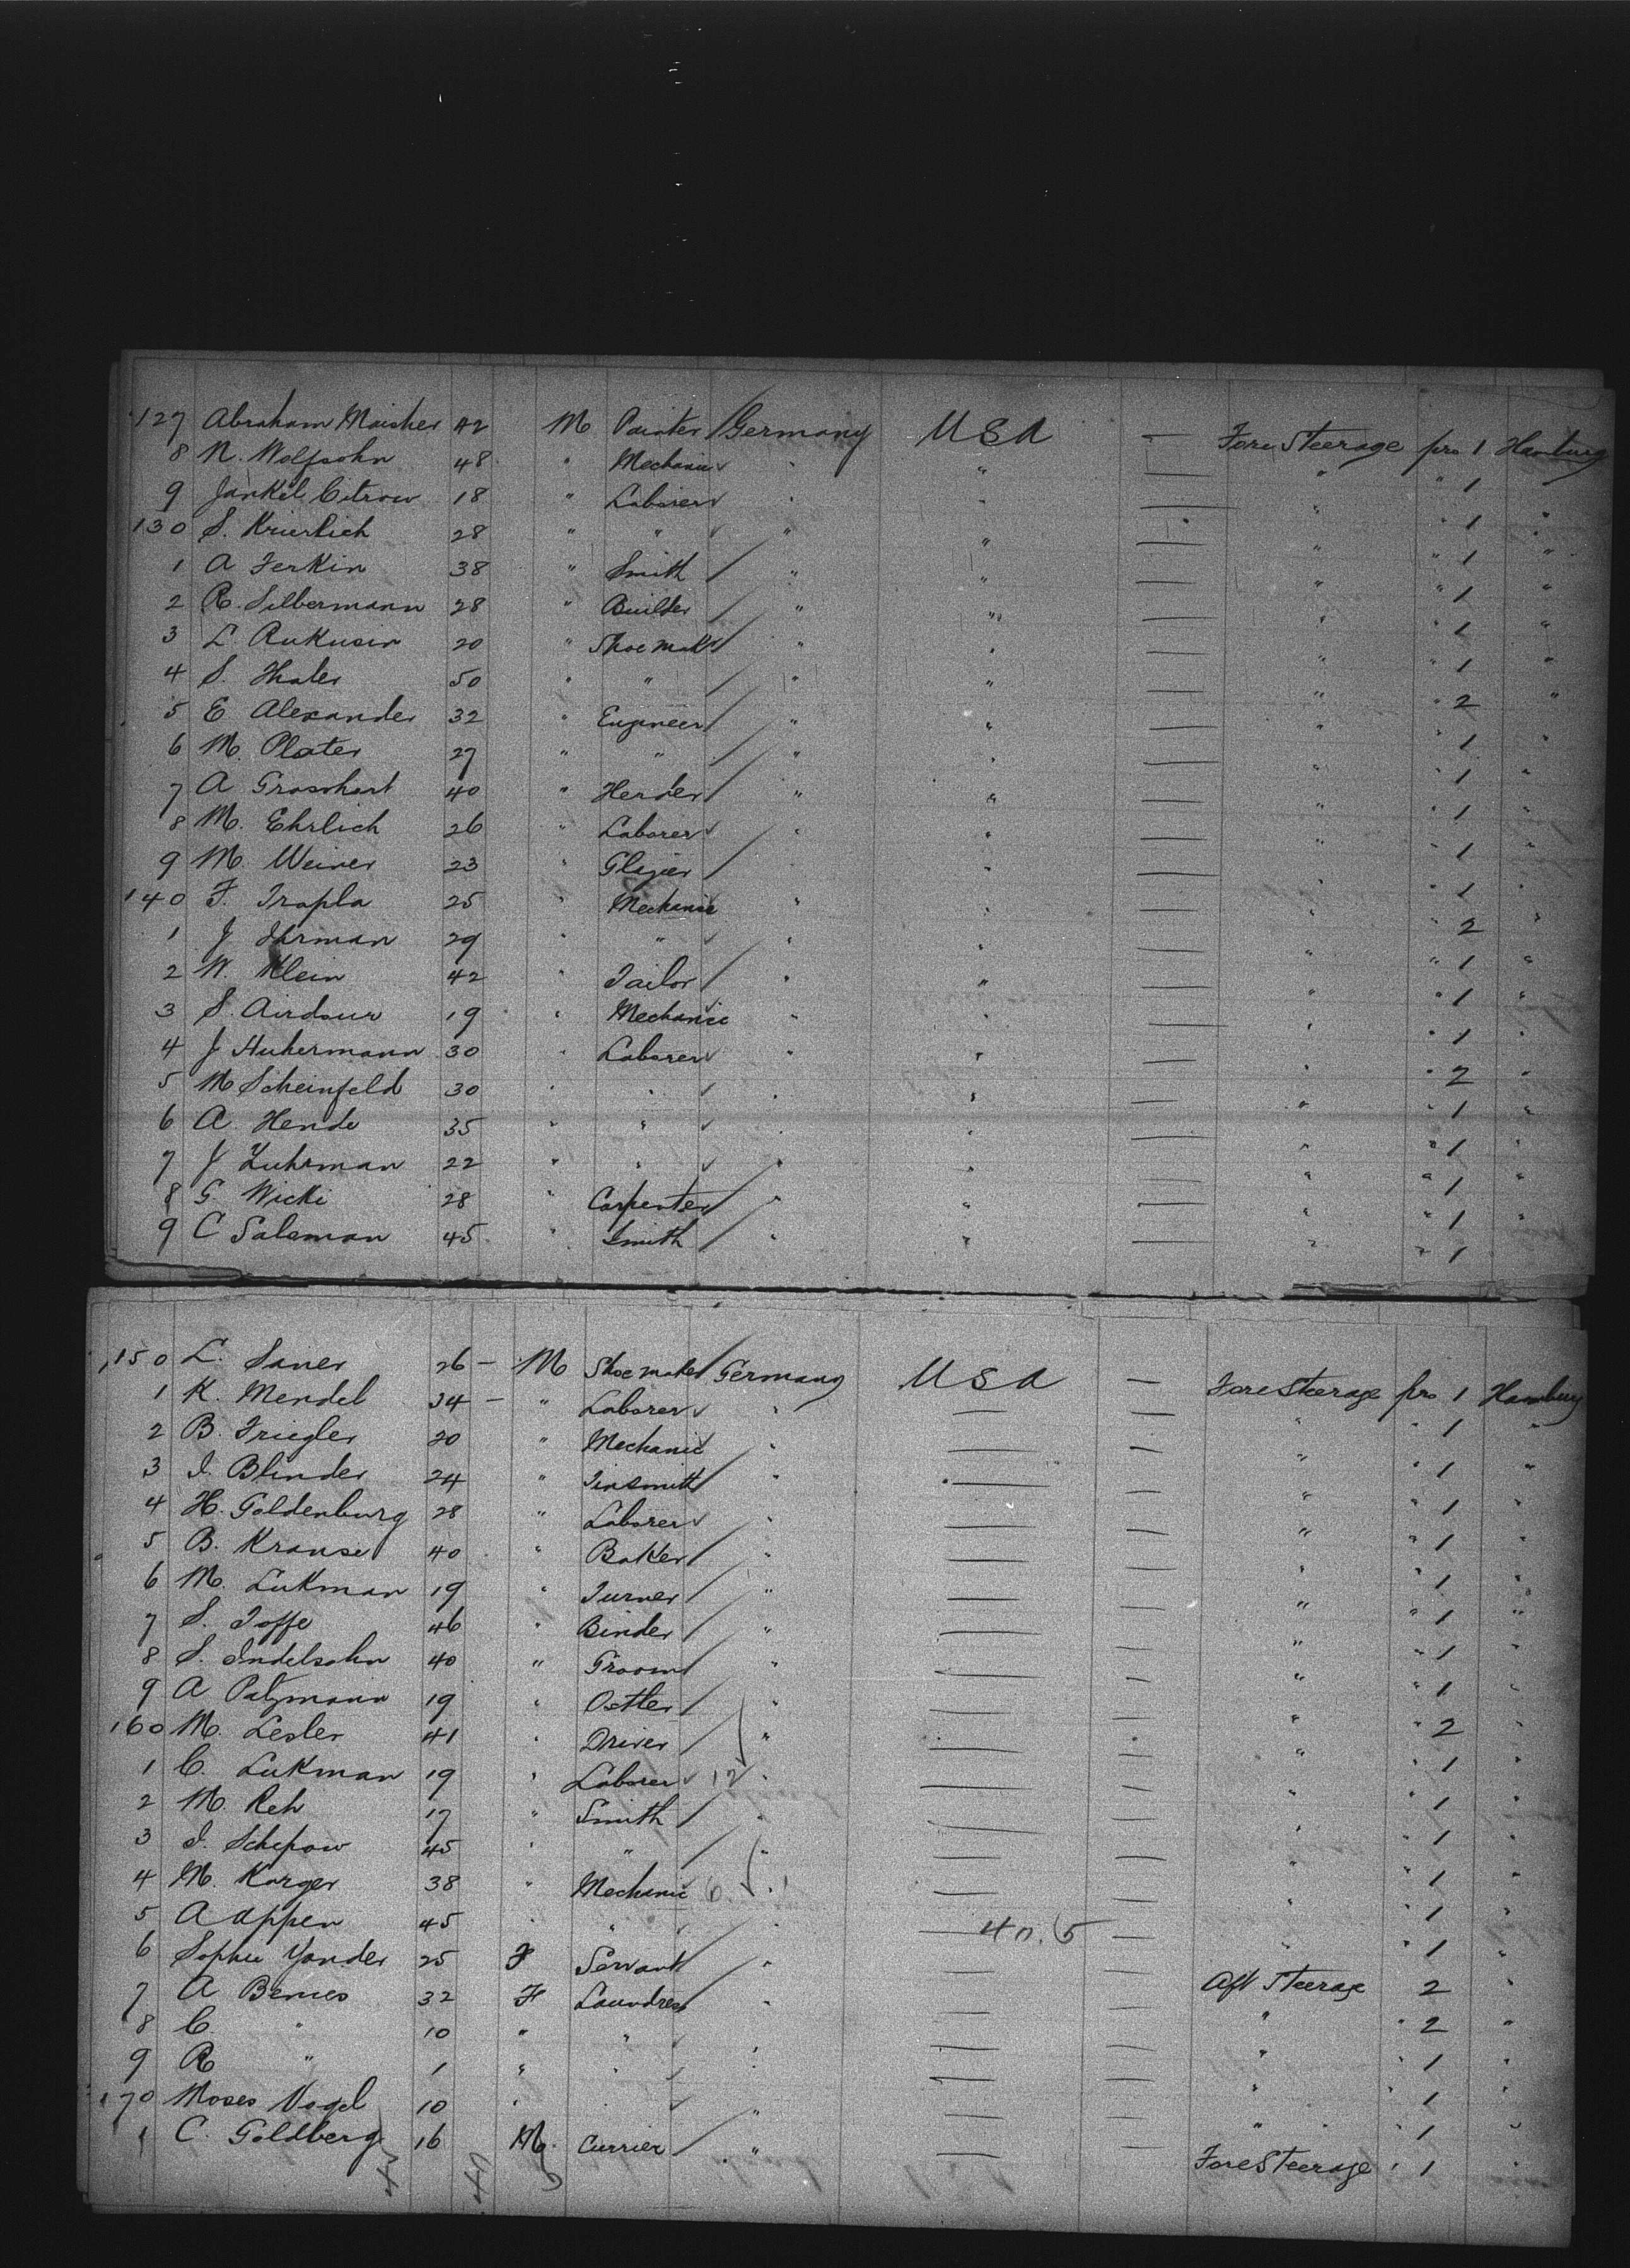 127 Abraham Maisher 42 M Painter Germany USA — Fore Steerage pro 1 Hamburg
8 N. Wolfsohn 48 " Mechanic " " — " " 1 "
9 Jankel Citrow 18 " Laborer " " — " " 1 "
130 S. 28 " " " " — " " 1 "
1 A Ferkin 38 " Smith " " — " " 1 "
2 R. Silbermann 28 " Builder " " — " " 1 "
3 L Rukusin 20 " Shoe makr " " — " " 1 "
4 S. Thaler 50 " " " " — " " 2 "
5 E Alexander 32 " Engineer " " — " " 1 "
6 M. Plater 27 " " " " — " " 1 "
7 A Grosshart 40 " Herder " " — " " 1 "
8 M. Ehrlich 26 " Laborer " " — " " 1 "
9 M. Weiner 23 " Glazier " " — " " 1 "
140 F. Trapla 25 " Mechanic " " — " " 2 "
1 J Ihrman 29 " " " " — " " 1 "
2 W. Klein 42 " Tailor " " — " " 1 "
3 S. 19 " Mechanic " " — " " 1 "
4 J Huhermann 30 " Laborer " " — " " 2 "
5 M Scheinfeld 30 " " " " — " " 1 "
6 A. Hende 35 " " " " — " " 1 "
7 J Luhrman 22 " " " " — " " 1 "
8 G. Wicki 28 " Carpenter " " — " " 1 "
9 C Saleman 45 " Smith " " — " " 1
150 L. Saner 26 — M Shoemaker Germany USA — Fore Steerage pro 1 Hamburg
1 K. Mendel 34 — " Laborer " — — " " 1 "
2 B. Friegler 20 " Mechanic " — — " " 1 "
3 I. Blinder 24 " Tinsmith " — — " " 1 "
4 H. Goldenburg 28 " Laborer " — — " " 1 "
5 B. Krause 40 " Baker " — — " " 1 "
6 M. Lukman 19 " Turner " — — " " 1 "
7 S. Joffe 46 " Binder " — — " " 1 "
8 S. Indelsohn 40 " Groom " — — " " 1 "
9 A Patzmann 19 " Ostler " — — " " 2 "
160 M. Lesler 41 " Driver " — — " " 1 "
1 C. Lukman 19 " Laborer 12 " — — " " 1 "
2 M. Reh 17 " Smith " — — " " 1 "
3 I. Schepow 45 " " " — — " " 1 "
4 M. Karger 38 " Mechanic 6. " — — " " 1 "
5 A Appen 45 " " " — 40.5 — " " 1 "
6 Sophie Yander 25 F Servant " — — Aft Steerage 2 "
7 A Bernes 32 F Laundress " — — " " 2 "
8 C. " 10 " " " — — " " 1 "
9 R " 1 " " " — — " " 1 "
170 Moses Vogel 10 " " " — — " " 1 "
1 C. Goldberg 16 M. Currier " — — Fore Steerage " 1 "